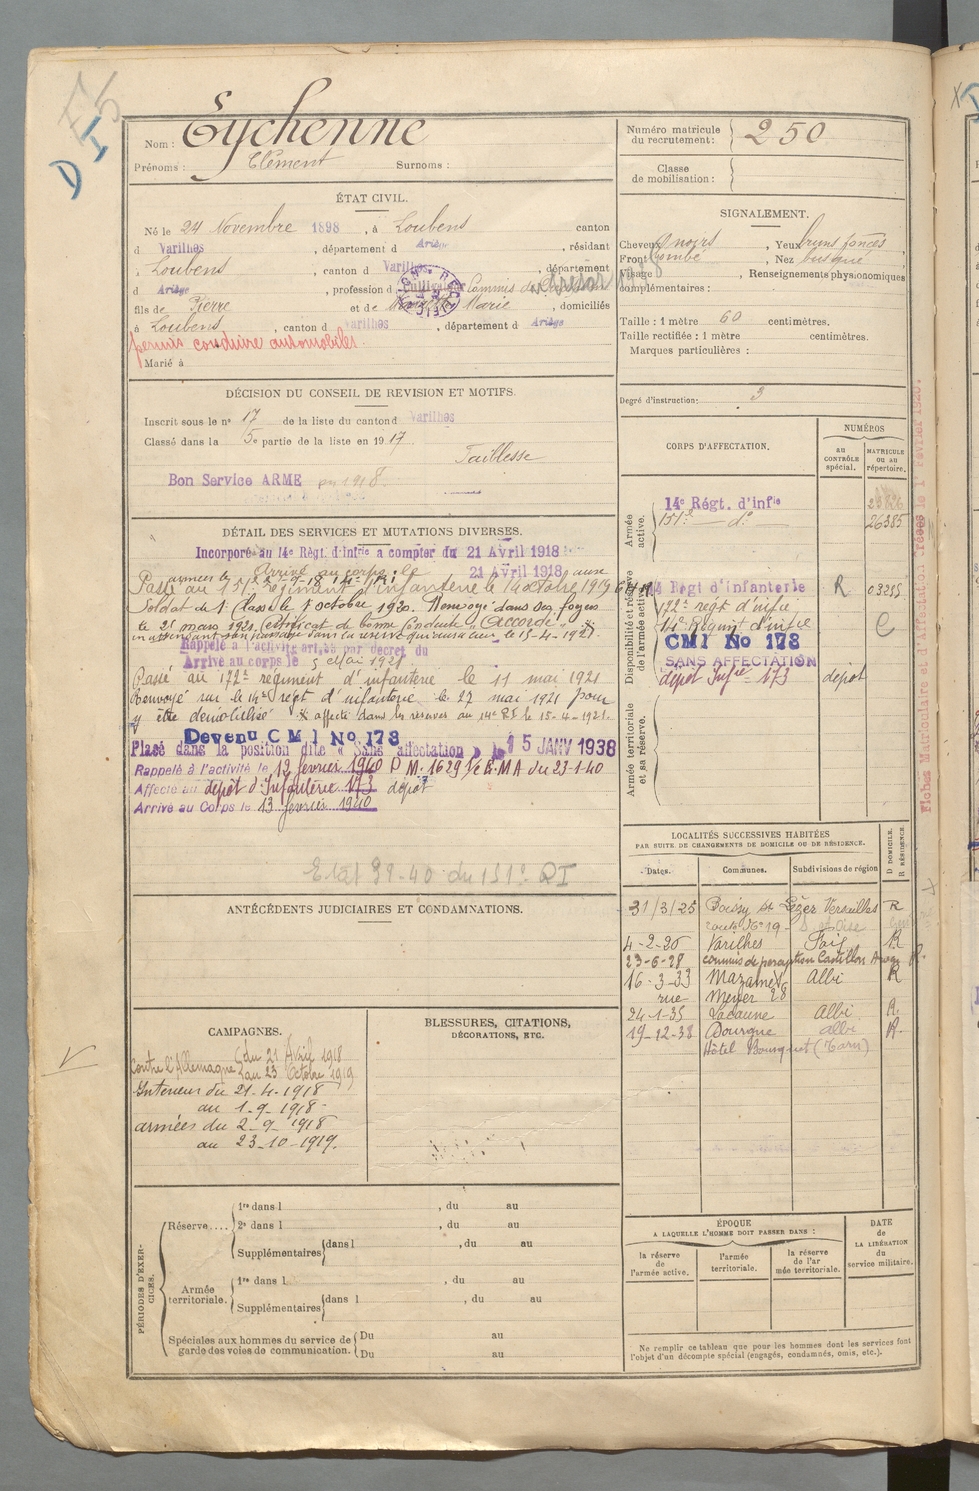 Nom : Eychenne
Prénoms : Clément Surnoms :
Numéro matricule du recrutement : 250
Classe de mobilisation :
ÉTAT CIVIL.
Né le 24 Novembre 1898, à Loubens canton
d Varilhes, département d Ariège, résidant
à Loubens, canton d Varilhes, département
d Ariège, profession d Cultivateur Commis du Trésor
fils de Pierre et de Marie, domiciliés
à Loubens, canton d Varilhes, département d Ariège
permis conduire automobiles
Marié à
SIGNALEMENT.
Cheveux noirs, Yeux bruns foncés
Front bombé, Nez busqué
Visage, Renseignements physionomiques
complémentaires :
Taille : 1 mètre 60 centimètres.
Taille rectifiée : 1 mètre centimètres.
Marques particulières :
Degré d'instruction : 3
DÉCISION DU CONSEIL DE REVISION ET MOTIFS.
Inscrit sous le n° 17 de la liste du canton d Varilhes
Classé dans la 5e partie de la liste en 1917
Faiblesse
Bon Service ARMÉ en 1918.
DÉTAIL DES SERVICES ET MUTATIONS DIVERSES.
Incorporé au 14e Régt. d'Infrie a compter du 21 Avril 1918
Arrivé au corps le 21 Avril 1918
Passé au 151e régiment d'infanterie le 1 octobre 1919
Soldat de 1e Classe le 1 octobre 1920. Renvoyé dans ses foyers
le 21 mars 1921. Certificat de bonne Conduite "Accordé"
en attendant son passage dans la réserve qui aura lieu le 15-4-1921.
Rappelé a l'activité par decret du
Arrivé au corps le 5 Mai 1921
Passé au 172e régiment d'infanterie le 11 mai 1921
Renvoyé sur le 14e régt d'infanterie le 27 mai 1921 pour
y être démobilisé affecté dans la réserve au 14e RI le 15-4-1921.
Devenu CMI No 178
Placé dans la position dite « Sans affectation » le 15 JANV 1938
Rappelé à l'activité le 12 fevrier 1940 P M. 1629 1/E.M.A du 23-1-40
Affecté au dépôt d'Infanterie 173 dépôt
Arrivé au Corps le 13 fevrier 1940
Etat 39-40 du 151e RI
CORPS D'AFFECTATION.
NUMÉROS
au CONTRÔLE spécial.
MATRICULE OU AU répertoire.
Armée active.
14e Régt. d'infie
151e do 26385
Disponibilité et réserve de l'armée active.
14 Régt d'infanterie R 03295
172e régt d'infie
14e Régimt d'infie C
CMI No 178
SANS AFFECTATION
dépôt Infie 173 dépôt
Armée territoriale et sa réserve.
Fiches Matriculaire et d'Affectation créées le 1er Février 1920.
ANTÉCÉDENTS JUDICIAIRES ET CONDAMNATIONS.
LOCALITÉS SUCCESSIVES HABITÉES
PAR SUITE DE CHANGEMENTS DE DOMICILE OU DE RÉSIDENCE.
Dates. Communes. Subdivisions de région D DOMICILE. R RÉSIDENCE.
31/3/25 Boissy St Léger Versailles R
route No 19 S et Oise
4-2-26 Varilhes Foix R
23-6-28 commis de perception Castillon R.
16-3-33 Mazamet Albi R
rue Meyer 28
24-1-35 Lacaune Albi R.
19-12-38 Dourgne albi R.
Hôtel Bourguet (Tarn)
CAMPAGNES.
Contre l'Allemagne du 21 Avril 1918
au 23 Octobre 1919
Intérieur du 21-4-1918
au 1-9-1918
armées du 2-9-1918
au 23-10-1919.
BLESSURES, CITATIONS,
DÉCORATIONS, ETC.
PÉRIODES D'EXERCICES.
Réserve.... 1re dans l, du au
2e dans l, du au
Supplémentaires dans l, du au
Armée territoriale. 1re dans l, du au
Supplémentaires dans l, du au
Spéciales aux hommes du service de garde des voies de communication. Du au
Du au
ÉPOQUE
A LAQUELLE L'HOMME DOIT PASSER DANS :
la réserve de l'armée active.
l'armée territoriale.
la réserve de l'armée territoriale.
DATE de LA LIBÉRATION du service militaire.
Ne remplir ce tableau que pour les hommes dont les services font
l'objet d'un décompte spécial (engagés, condamnés, omis, etc.).